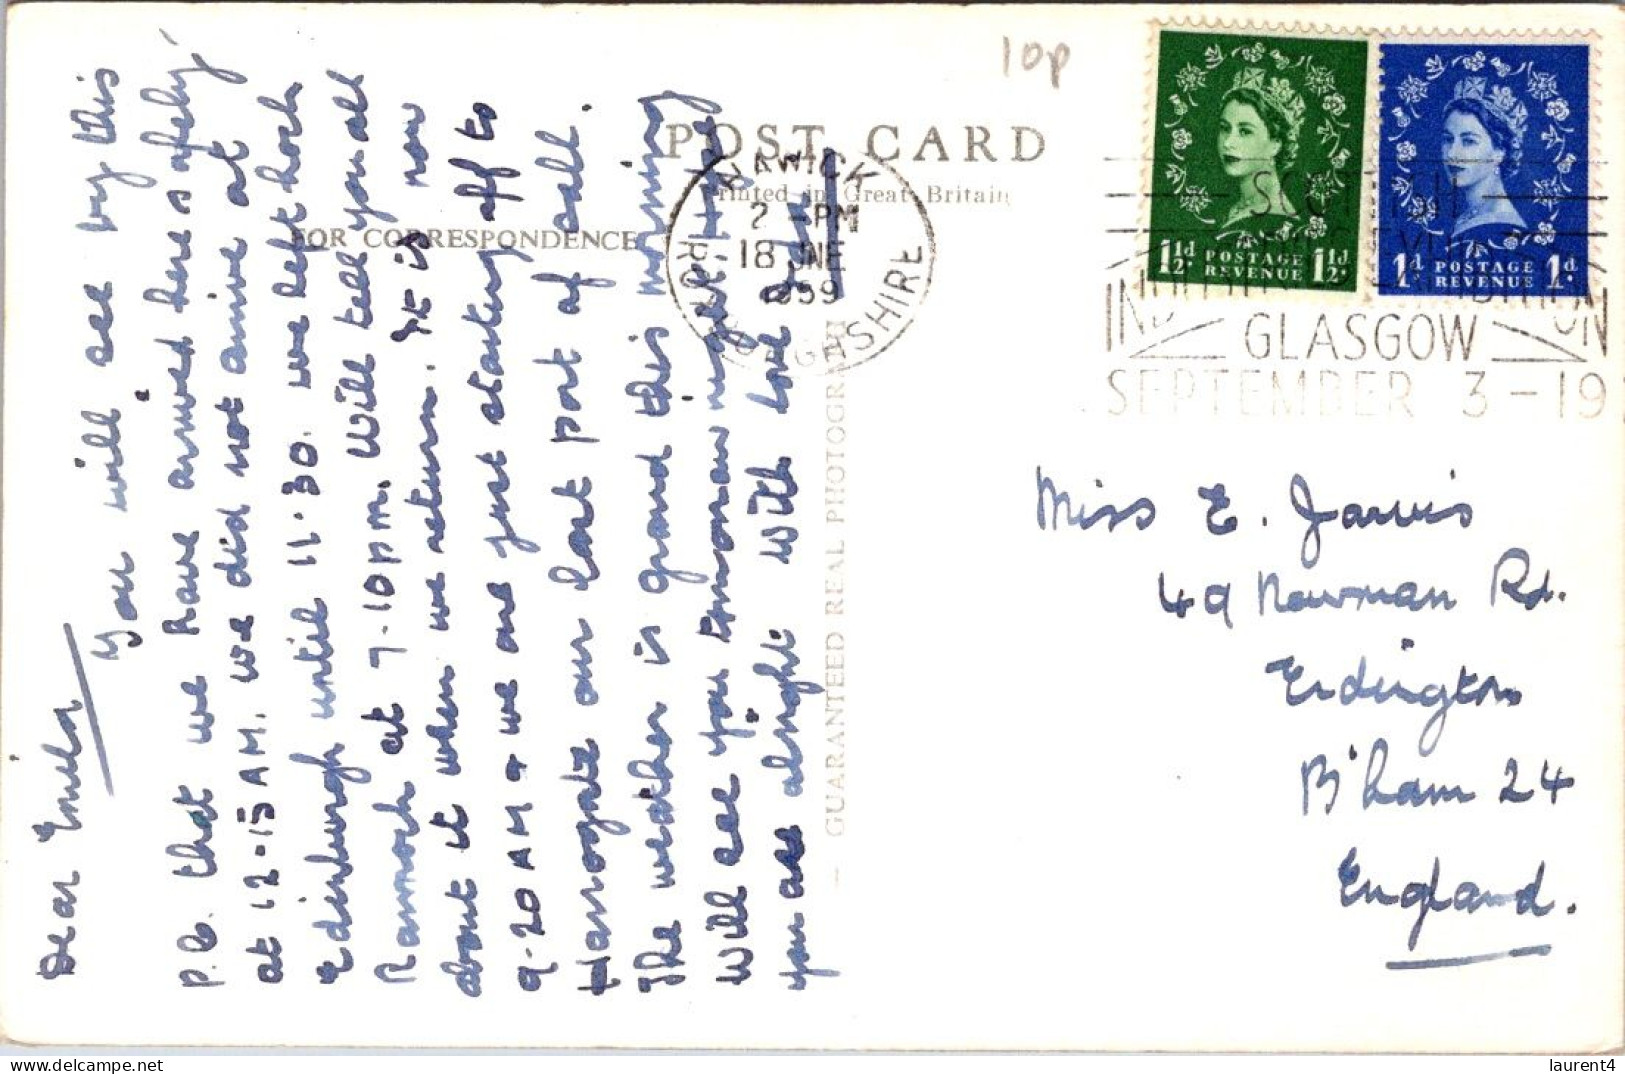 10p
POST CARD
Printed in Great Britain
FOR CORRESPONDENCE
GUARANTEED REAL PHOTOGRAPH
HAWICK
2 - PM
18 JNE
1959
ROXBURGHSHIRE
1½d POSTAGE REVENUE 1½d
1d POSTAGE REVENUE 1d
SCOTTISH
INDUSTRIES EXHIBITION
GLASGOW
SEPTEMBER 3 - 19
Dear Emily
You will see by this
p.c. that we have arrived here safely
at 12-15 AM. we did not arrive at
Edinburgh until 11.30. we left Loch
Rannoch at 7-10 pm. Will tell you all
about it when we return. It is now
9-20 AM & we are just starting off to
Harrogate our last port of call.
The weather is grand this morning
Will see you tomorrow night. Hope
you are alright. with love
Miss E. Jarvis
49 Newman Rd.
Erdington
B'ham 24
England.
laurent4